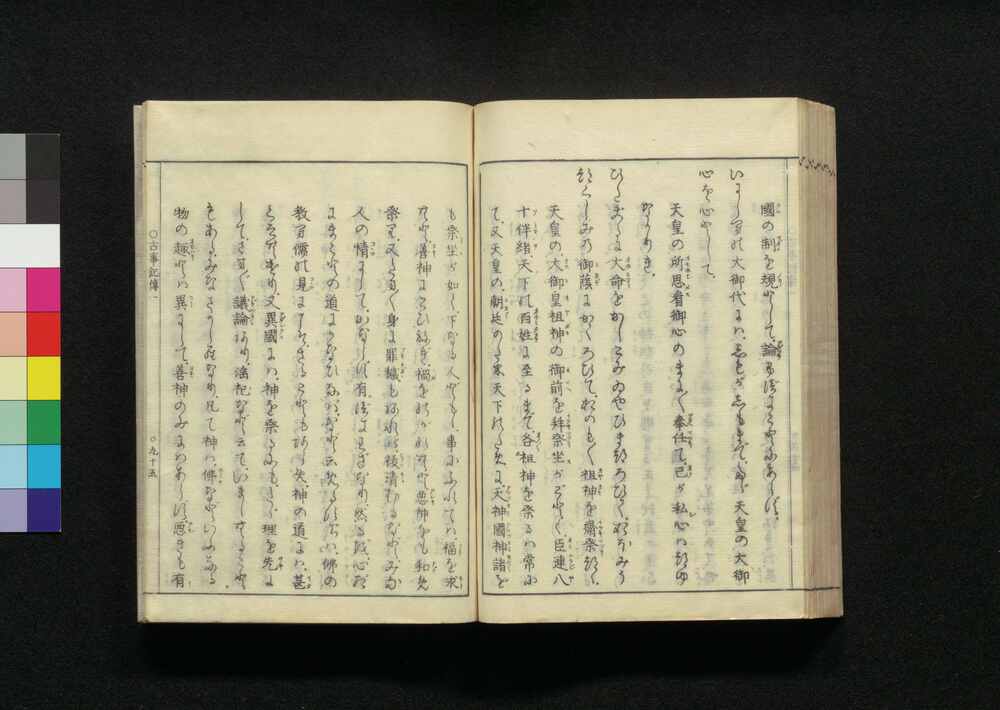 國の制を規として、論ふべきことにあらず、
いにしへの大御代には、しもがしもまで、たゞ天皇の大御
心を心として、
天皇の所思看御心のまに〳〵奉仕て、己が私心はつゆ
なかりき、
ひたぶるに大命をかしこみゐやびまつろひて、おほみう
つくしみの御蔭にかくろひて、おのも〳〵祖神を齋祭つゝ、
天皇の、大御皇祖神の御前を拜祭坐がごとく、臣連八
十伴緒、天下の百姓に至るまで、各祖神を祭るは常に
て、又天皇の、朝廷のため天下のために、天神國神諸を
も祭坐が如く、下なる人どもゝ、事にふれては、福を求
むと、善神にこひねぎ、禍をのがれむと、悪神をも和め
祭り、又たま〳〵身に罪穢もあれば、祓清むるなど、みな
人の情にして、かならず有べきわざなり、然るを、心だ
にまことの道にかなひなば、など云めるすぢは、佛の
教へ儒の見にこそ、さることもあらめ、神の道には、甚
くそむけり、又異國には、神を祭るにも、たゞ理を先に
して、さま〴〵議論あり、淫祀など云て、いましむること
もある、みなさかしらなり、凡て神は、佛などいふなる
物の趣とは異にして、善神のみにはあらず、悪きも有
○古事記傳一
○九十五